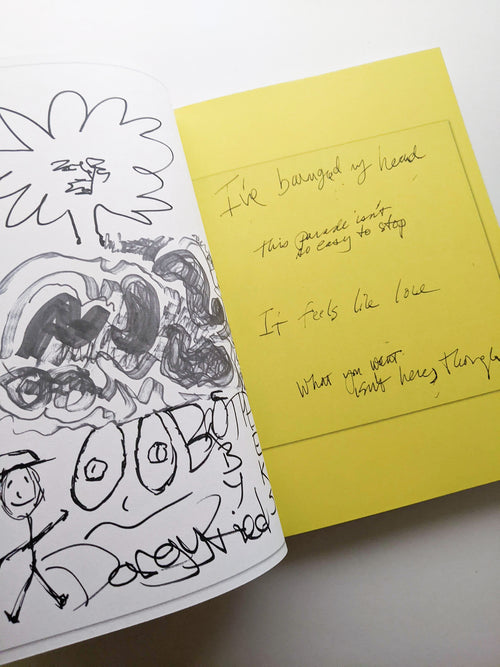 BROTHERS
BY
I've banged my head
this parade isn't
so easy to stop
It feels like love
What you want
isn't here, though